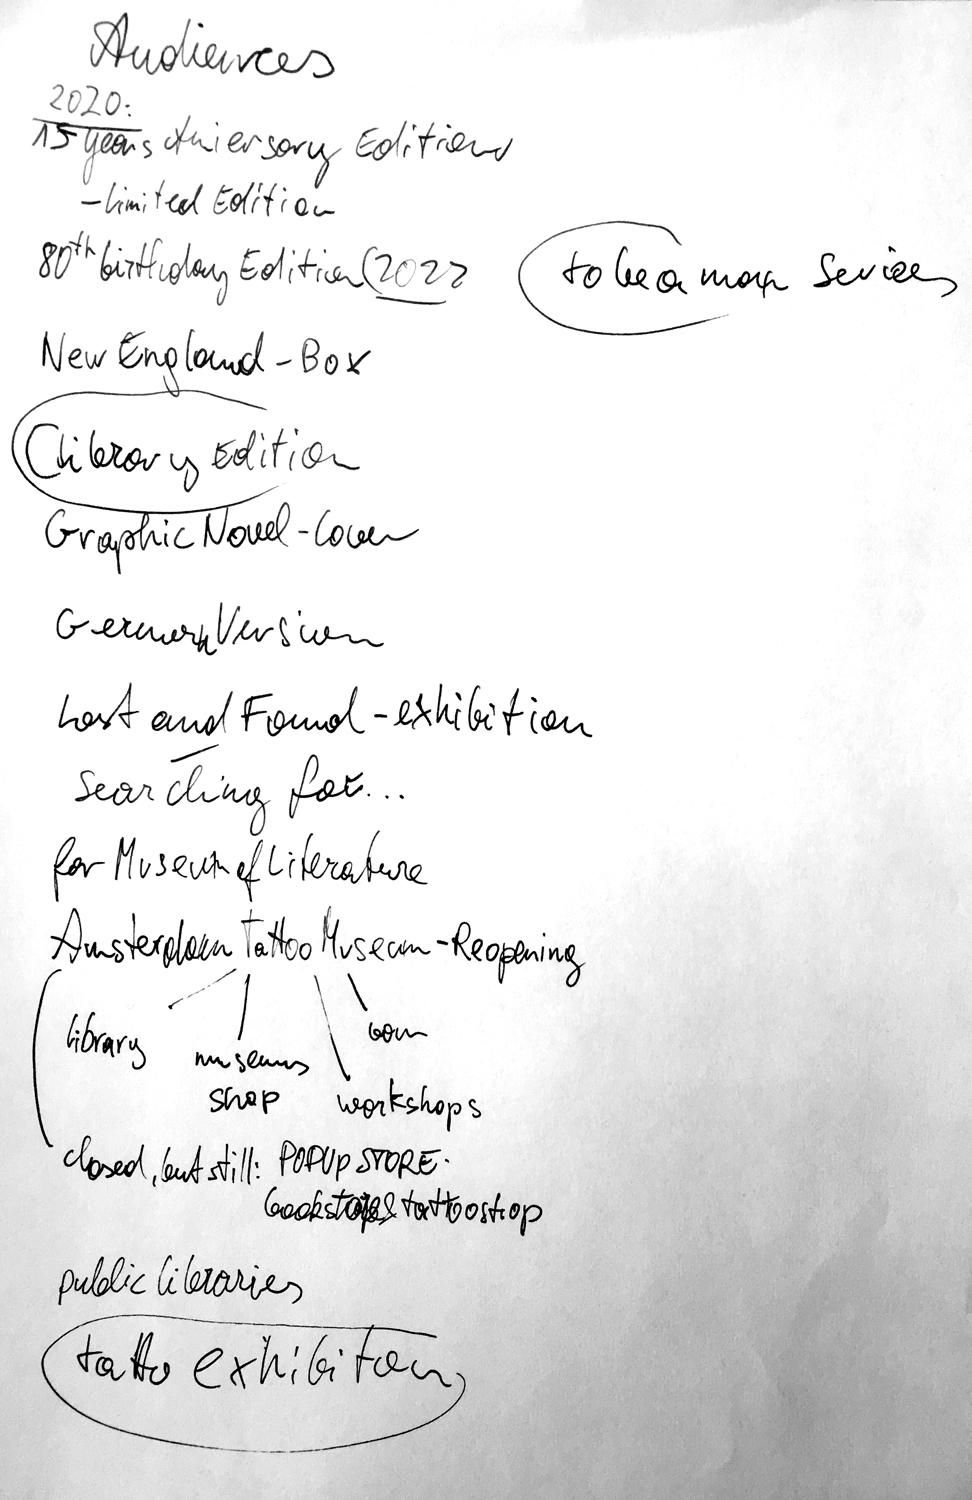 Audiences
2020:
15 years Aniversary Edition
-Limited Edition
80th birthday Edition (2022
to be a man Series
New England - Box
Library Edition
Graphic Novel - Cover
German Version
Lost and Found - exhibition
Searching for...
for Museum of Literature
Amsterdam Tattoo Museum - Reopening
library
museums
shop
workshops
closed, but still: POPUP STORE.
bookstore & tattooshop
public libraries
tatto exhibiton